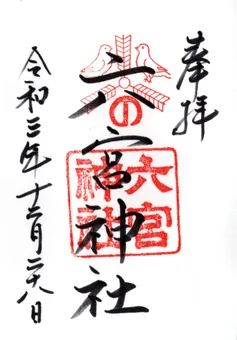 奉拝
の
六宮神社
六宮
神社
令和三年十二月二八日